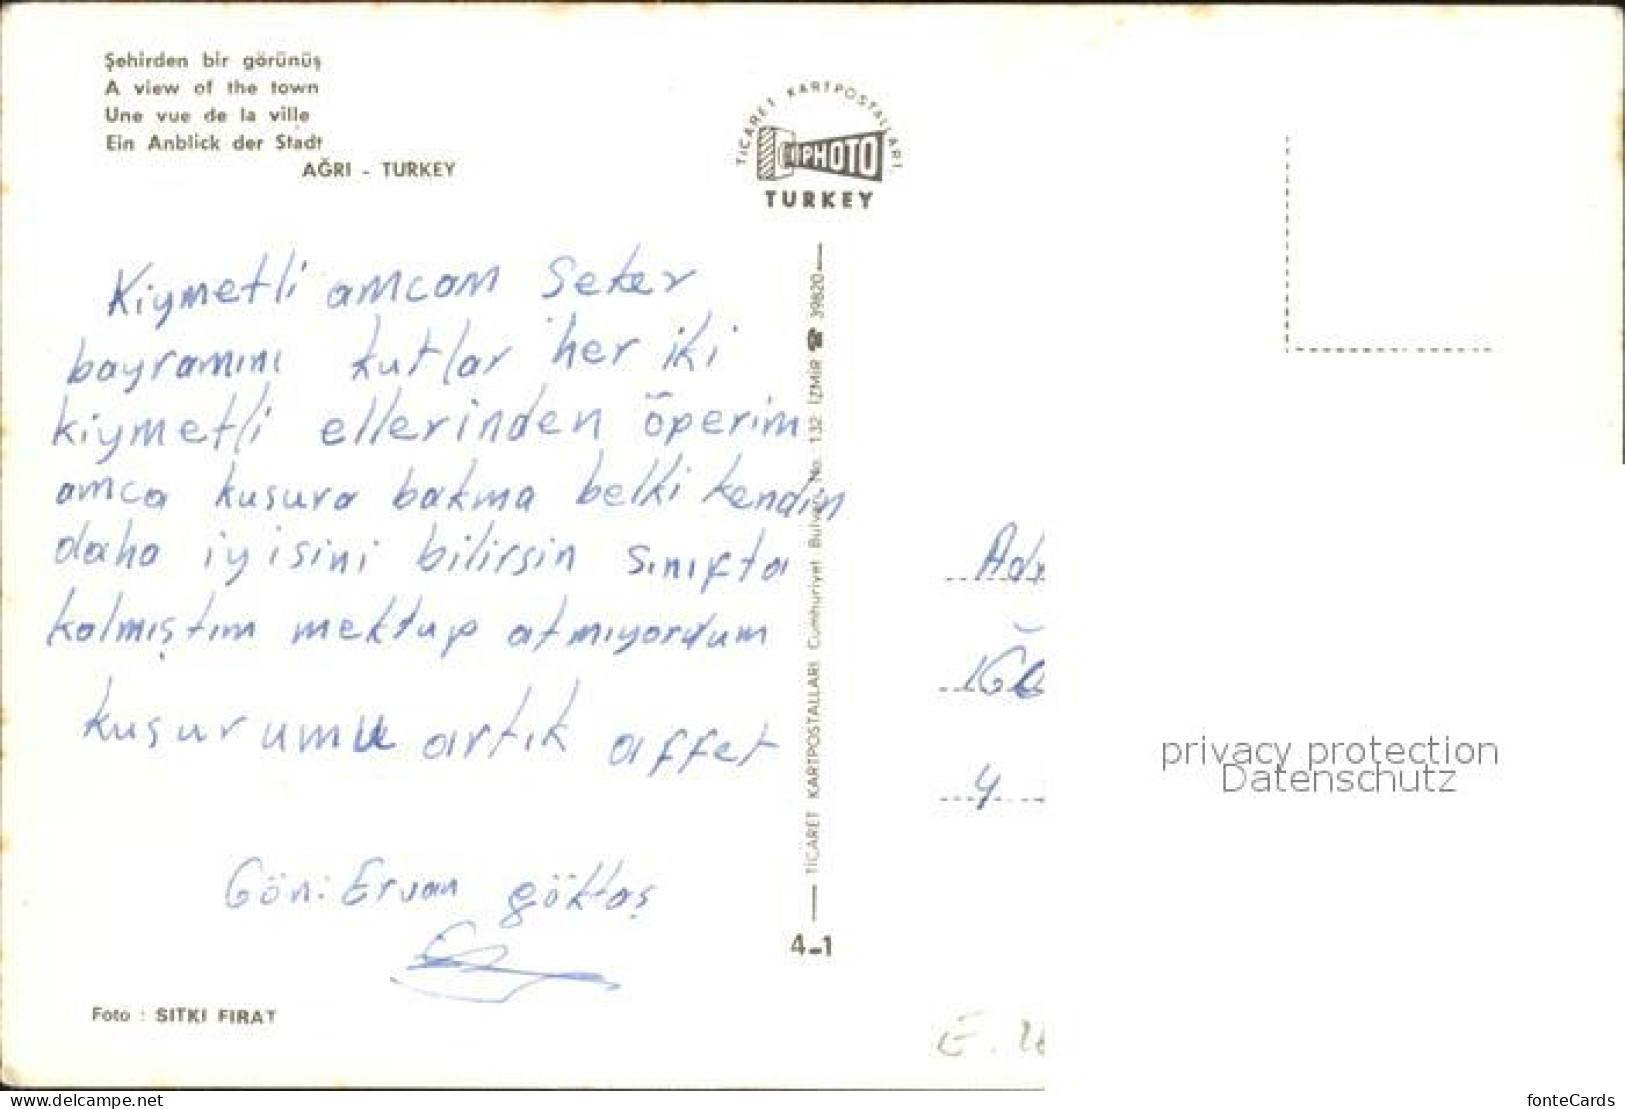 Şehirden bir görünüş
A view of the town
Une vue de la ville
Ein Anblick der Stadt
AĞRI - TURKEY
TİCARET KARTPOSTALLARI
PHOTO
TURKEY
Kiymetli amcam Şeker
bayramını kutlar her iki
kiymetli ellerinden öperim
amca kusura bakma belki kendin
daha iyisini bilirsin sınıfta
kalmıştım mektup atmıyordum
kusurumu artık affet
Gön: Ervan göktaş
Foto : SITKI FIRAT
TİCARET KARTPOSTALLARI Cumhuriyet Bulvarı, No: 132 İZMİR ☎ 39820
4-1
Adr
4
E.
privacy protection
Datenschutz
www.delcampe.net
fonteCards